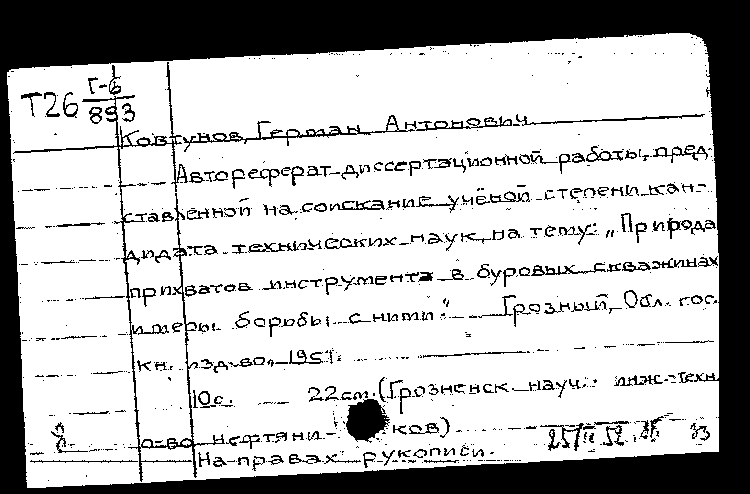 Т26 Г-6
893
Ковтунов, Герман Антонович.
Автореферат диссертационной работы, пред-
ставленной на соискание учёной степени кан-
дидата технических наук, на тему: „Природа
прихватов инструмента в буровых скважинах
и меры борьбы с ними." Грозный, Обл. гос.
кн. изд-во, 1951.
10с. 22см. (Грозненск. науч. инж.-техн.
о-во нефтяни- ков)
На правах рукописи.
25/II 52